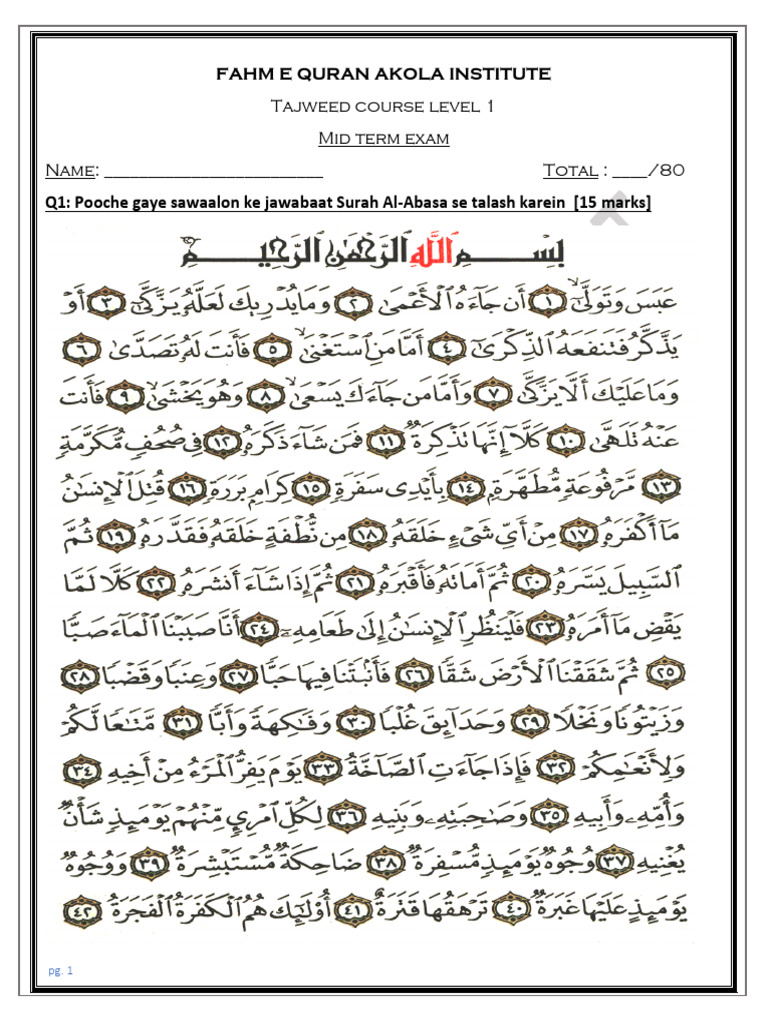 FAHM E QURAN AKOLA INSTITUTE
TAJWEED COURSE LEVEL 1
MID TERM EXAM
NAME: _________________________ TOTAL : ____/80
Q1: Pooche gaye sawaalon ke jawabaat Surah Al-Abasa se talash karein [15 marks]
بِسْمِ اللَّهِ الرَّحْمَٰنِ الرَّحِيمِ
عَبَسَ وَتَوَلَّىٰٓ ١ أَن جَآءَهُ ٱلْأَعْمَىٰ ٢ وَمَا يُدْرِيكَ لَعَلَّهُۥ يَزَّكَّىٰٓ ٣ أَوْ
يَذَّكَّرُ فَتَنفَعَهُ ٱلذِّكْرَىٰٓ ٤ أَمَّا مَنِ ٱسْتَغْنَىٰ ٥ فَأَنتَ لَهُۥ تَصَدَّىٰ ٦
وَمَا عَلَيْكَ أَلَّا يَزَّكَّىٰ ٧ وَأَمَّا مَن جَآءَكَ يَسْعَىٰ ٨ وَهُوَ يَخْشَىٰ ٩ فَأَنتَ
عَنْهُ تَلَهَّىٰ ١٠ كَلَّآ إِنَّهَا تَذْكِرَةٌ ١١ فَمَن شَآءَ ذَكَرَهُۥ ١٢ فِى صُحُفٍ مُّكَرَّمَةٍ
١٣ مَّرْفُوعَةٍ مُّطَهَّرَةٍۭ ١٤ بِأَيْدِى سَفَرَةٍ ١٥ كِرَامٍۭ بَرَرَةٍ ١٦ قُتِلَ ٱلْإِنسَٰنُ
مَآ أَكْفَرَهُۥ ١٧ مِنْ أَىِّ شَىْءٍ خَلَقَهُۥ ١٨ مِن نُّطْفَةٍ خَلَقَهُۥ فَقَدَّرَهُۥ ١٩ ثُمَّ
ٱلسَّبِيلَ يَسَّرَهُۥ ٢٠ ثُمَّ أَمَاتَهُۥ فَأَقْبَرَهُۥ ٢١ ثُمَّ إِذَا شَآءَ أَنشَرَهُۥ ٢٢ كَلَّا لَمَّا
يَقْضِ مَآ أَمَرَهُۥ ٢٣ فَلْيَنظُرِ ٱلْإِنسَٰنُ إِلَىٰ طَعَامِهِۦٓ ٢٤ أَنَّا صَبَبْنَا ٱلْمَآءَ صَبًّا
٢٥ ثُمَّ شَقَقْنَا ٱلْأَرْضَ شَقًّا ٢٦ فَأَنۢبَتْنَا فِيهَا حَبًّا ٢٧ وَعِنَبًا وَقَضْبًا ٢٨
وَزَيْتُونًا وَنَخْلًا ٢٩ وَحَدَآئِقَ غُلْبًا ٣٠ وَفَٰكِهَةً وَأَبًّا ٣١ مَّتَٰعًا لَّكُمْ
وَلِأَنْعَٰمِكُمْ ٣٢ فَإِذَا جَآءَتِ ٱلصَّآخَّةُ ٣٣ يَوْمَ يَفِرُّ ٱلْمَرْءُ مِنْ أَخِيهِ ٣٤
وَأُمِّهِۦ وَأَبِيهِ ٣٥ وَصَٰحِبَتِهِۦ وَبَنِيهِ ٣٦ لِكُلِّ ٱمْرِئٍ مِّنْهُمْ يَوْمَئِذٍ شَأْنٌ
يُغْنِيهِ ٣٧ وُجُوهٌ يَوْمَئِذٍ مُّسْفِرَةٌ ٣٨ ضَاحِكَةٌ مُّسْتَبْشِرَةٌ ٣٩ وَوُجُوهٌ
يَوْمَئِذٍ عَلَيْهَا غَبَرَةٌ ٤٠ تَرْهَقُهَا قَتَرَةٌ ٤١ أُو۟لَٰٓئِكَ هُمُ ٱلْكَفَرَةُ ٱلْفَجَرَةُ ٤٢
pg. 1